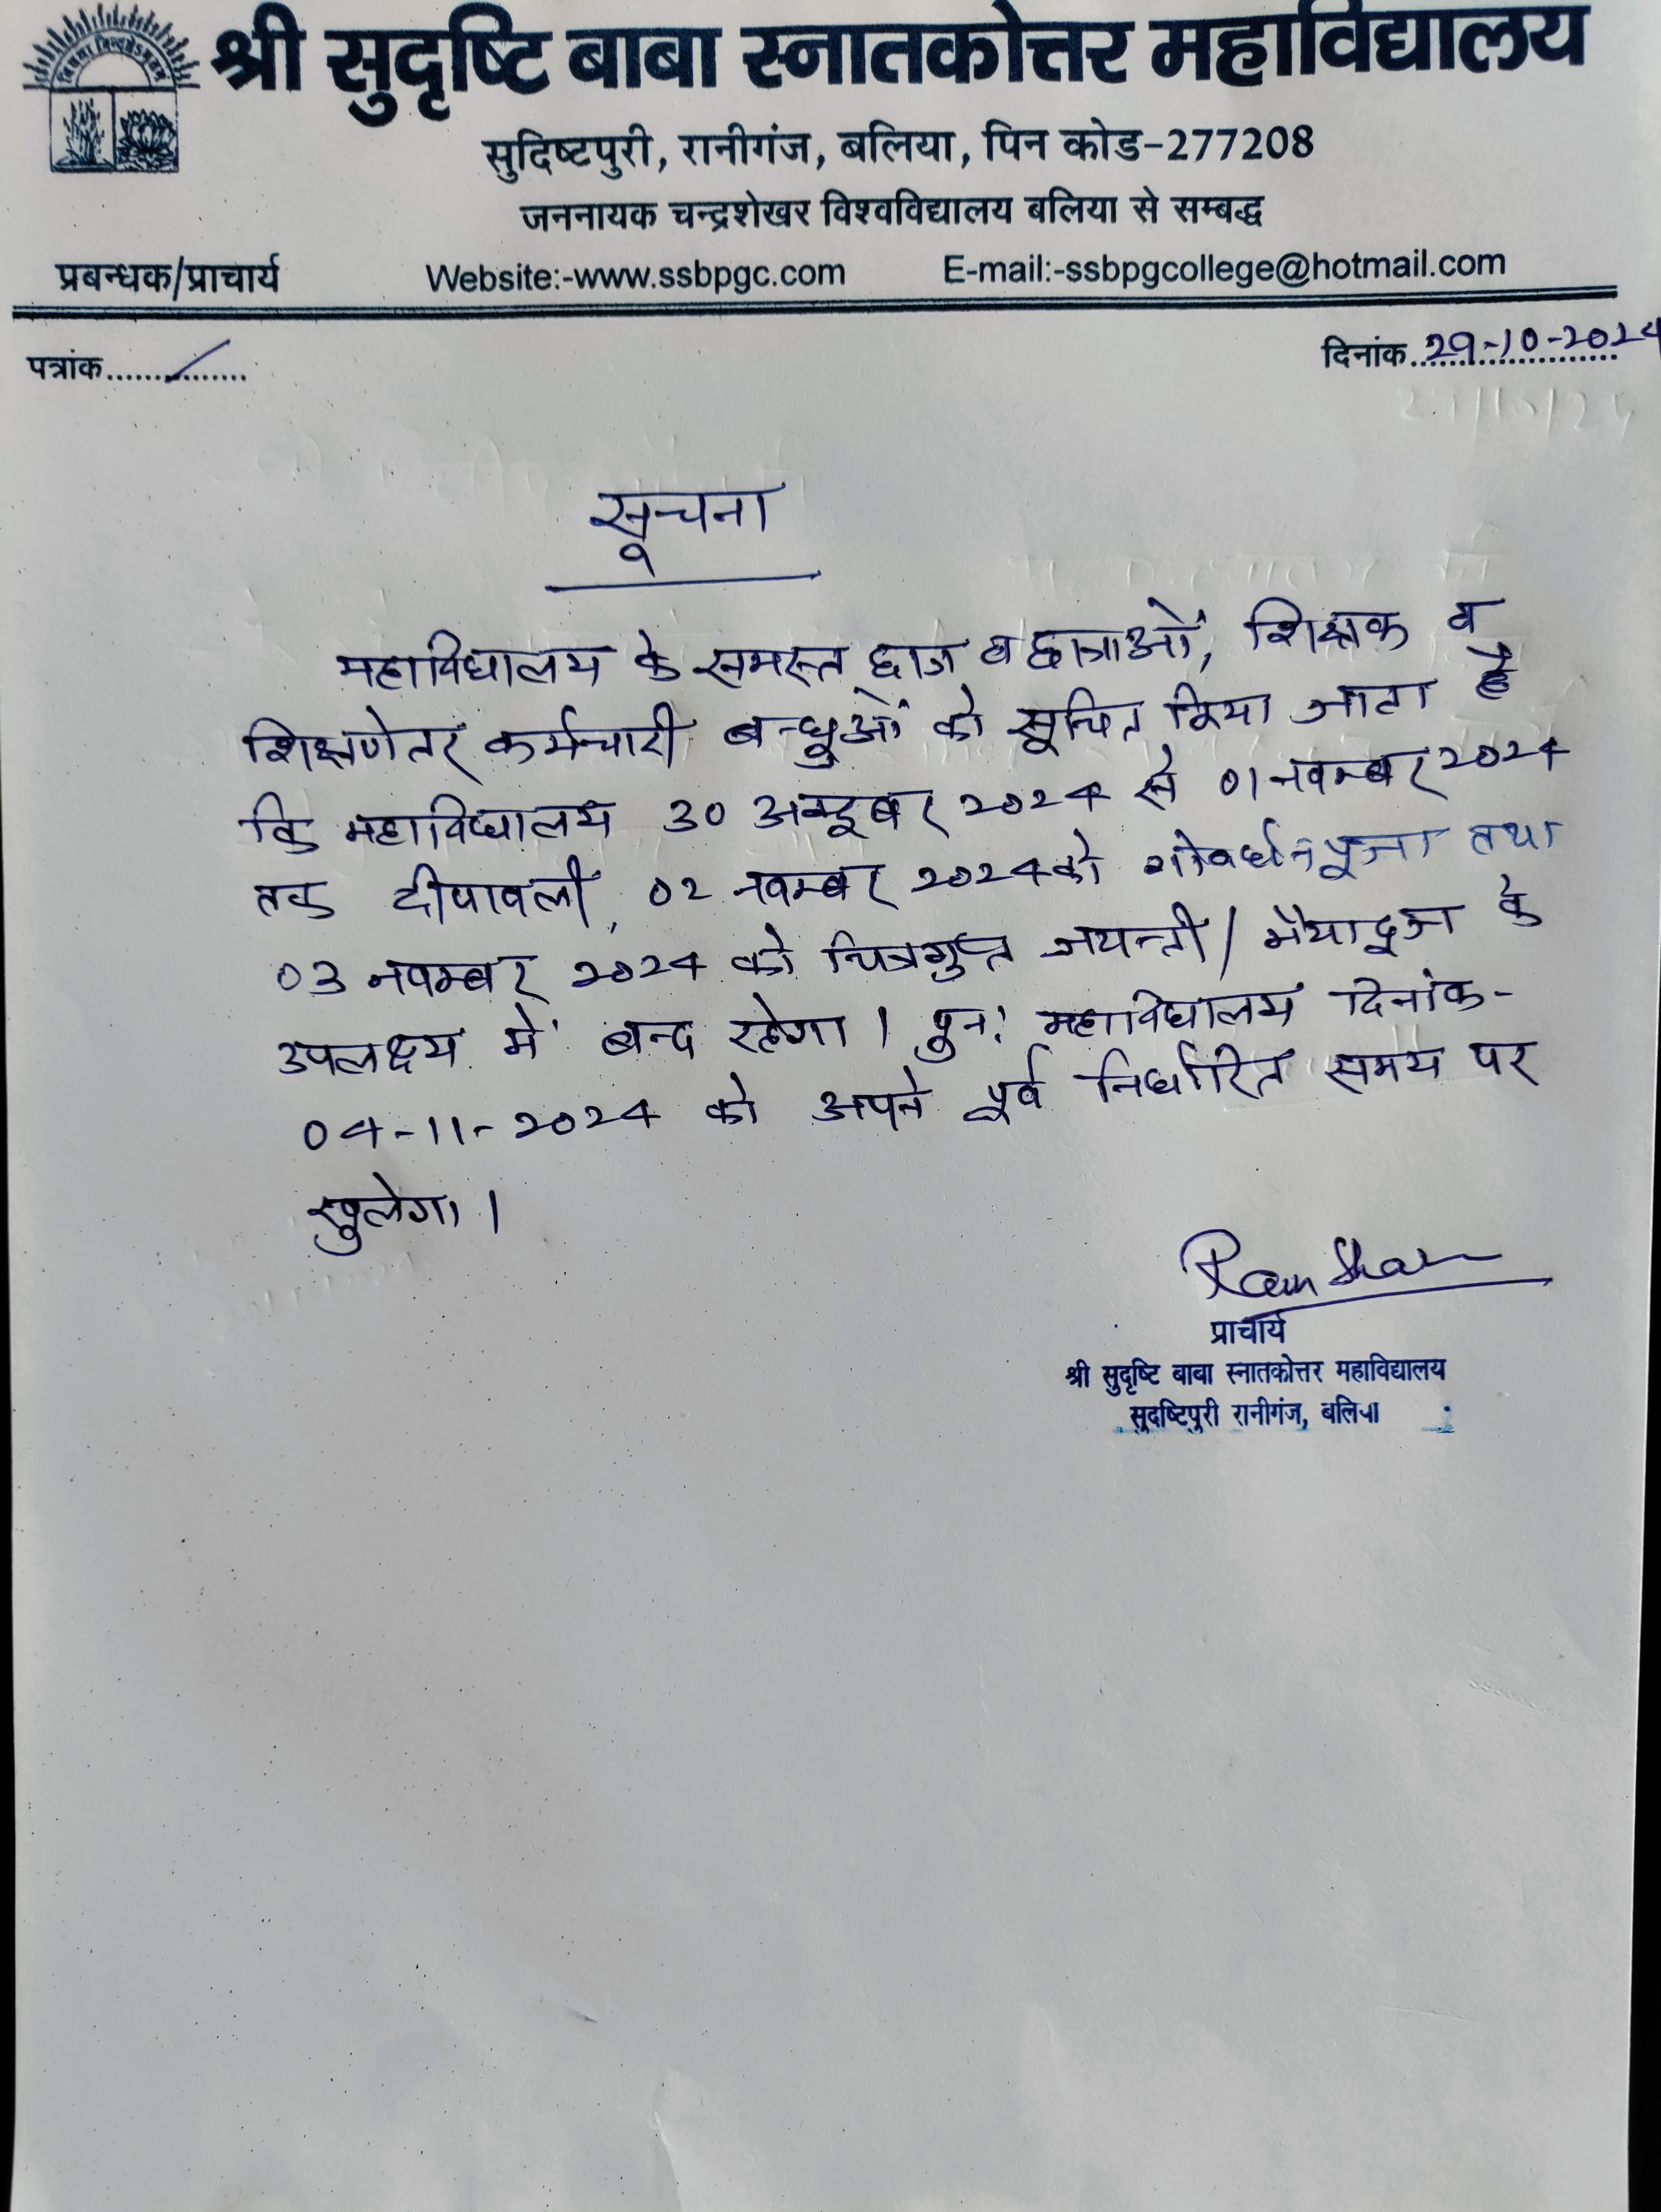 श्री सुदृष्टि बाबा स्नातकोत्तर महाविद्यालय
सुदिष्टपुरी, रानीगंज, बलिया, पिन कोड-277208
जननायक चन्द्रशेखर विश्वविद्यालय बलिया से सम्बद्ध
प्रबन्धक/प्राचार्य Website:-www.ssbpgc.com E-mail:-ssbpgcollege@hotmail.com
पत्रांक............... दिनांक 29-10-2024
सूचना
महाविद्यालय के समस्त छात्र व छात्राओं, शिक्षक व
शिक्षणेतर कर्मचारी बन्धुओं को सूचित किया जाता है
कि महाविद्यालय 30 अक्टूबर 2024 से 01 नवम्बर 2024
तक दीपावली, 02 नवम्बर 2024 को गोवर्धन पूजा तथा
03 नवम्बर 2024 को चित्रगुप्त जयन्ती / भैयादूज के
उपलक्ष्य में बन्द रहेगा। पुन: महाविद्यालय दिनांक-
04-11-2024 को अपने पूर्व निर्धारित समय पर
खुलेगा।
प्राचार्य
श्री सुदृष्टि बाबा स्नातकोत्तर महाविद्यालय
सुदष्टिपुरी रानीगंज, बलिया